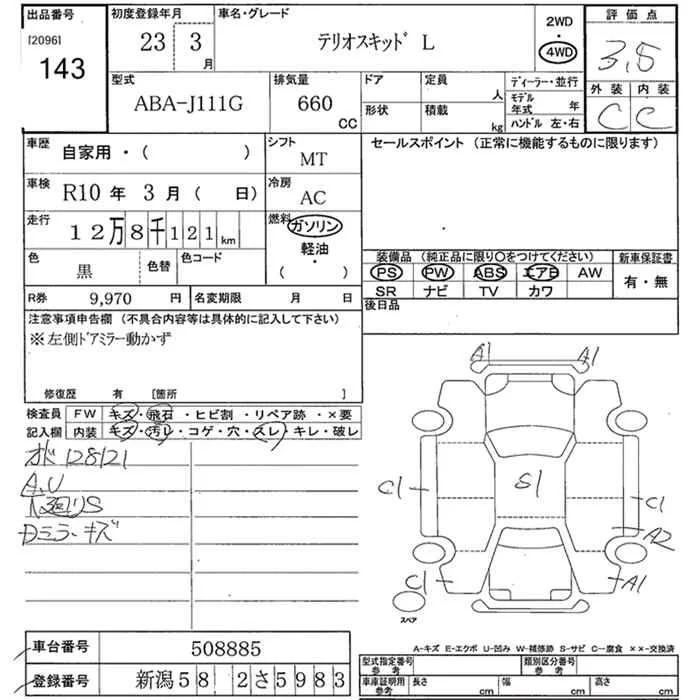 出品番号 初度登録年月 車名・グレード 2WD 評価点
[2096] 23 3月 テリオスキッド L ・ 3.5
143 4WD
型式 排気量 ドア 定員 人 ディーラー・並行 外装 内装
ABA-J111G 660 CC 形状 積載 kg モデル年式 年 C C
ハンドル 左・右
車歴 自家用・( ) シフト MT セールスポイント (正常に機能するものに限ります)
車検 R10年 3月( 日) 冷房 AC
走行 12万8千121km 燃料 ガソリン
軽油
・
( )
色 黒 色替 色コード 装備品 (純正品に限り○をつけてください) 新車保証書
PS PW ABS エアB AW 有・無
SR ナビ TV カワ
R券 9,970 円 名変期限 月 日 後日品
注意事項申告欄 (不具合内容等は具体的に記入して下さい)
※左側ドアミラー動かず
修復歴 有 [箇所 ]
検査員 FW キズ・飛石・ヒビ割・リペア跡・×要
記入欄 内装 キズ・汚レ・コゲ・穴・スレ・キレ・破レ
128121
A,U
廻りS
Dミラーキズ
A1 A1
C1 S1 C1
A2
C1 A1
スペア
車台番号 508885
登録番号 新潟58 2さ5983
A-キズ E-エクボ U-凹み W-補修跡 S-サビ C-腐食 ××-交換済
型式指定番号 参考 類別区分番号 参考
車庫証明用 参考 長さ cm 幅 cm 高さ cm